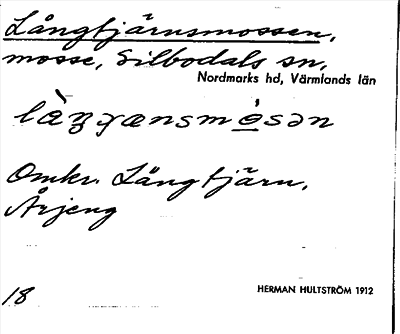 Långtjärnsmossen,
mosse, Silbodals sn,
Nordmarks hd, Värmlands län
Omkr. Långtjärn,
Årjeng
18
HERMAN HULTSTRÖM 1912